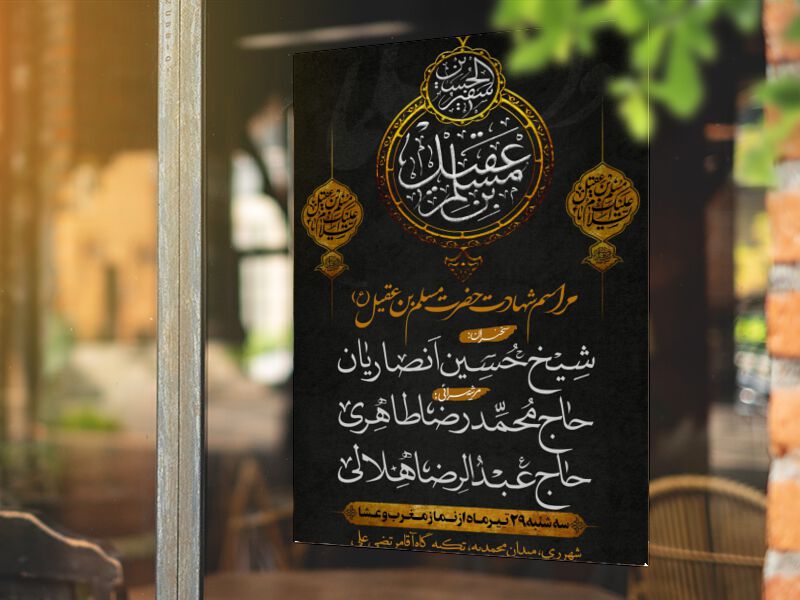 سفیر الحسین
مسلم بن عقیل
السلام علیک یا مسلم بن عقیل
مراسم شهادت حضرت مسلم بن عقیل (ع)
سخنران:
شیخ حُسین اَنصاریان
مرثیه سرائی:
حاج مُحمّد رضا طاهری
حاج عَبدُالرضا هِلالی
سه شنبه ۲۹ تیر ماه از نماز مغرب و عشا
شهرری، میدان محمدیه، تکیه گاه آقا مرتضی علی